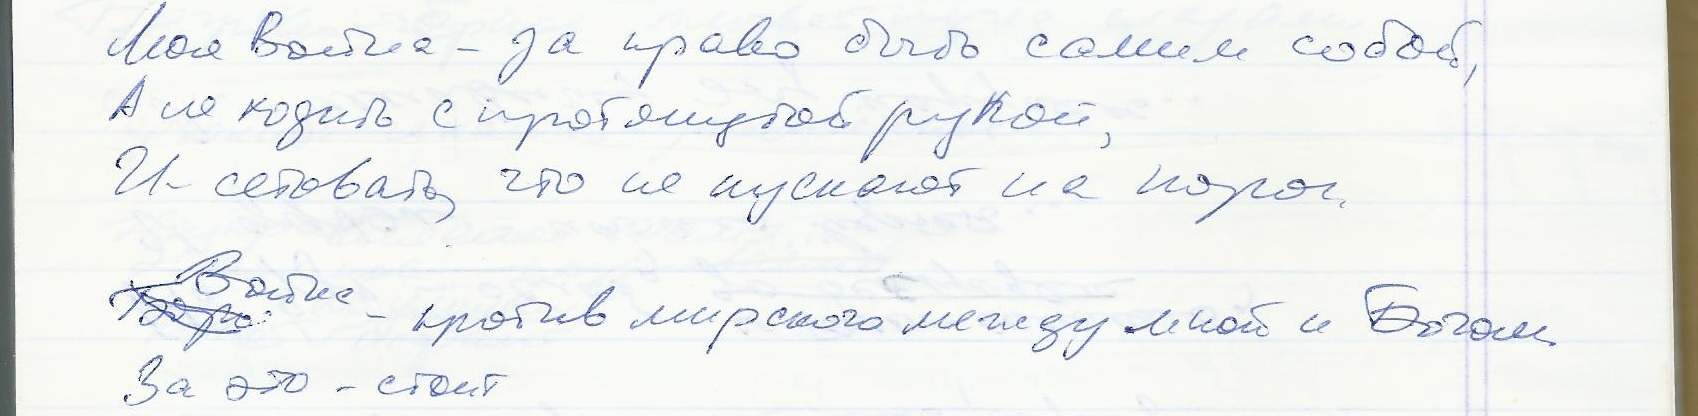 Моя Война – за право быть самим собой,
А не ходить с протянутой рукой,
И – сетовать, что не пускают на порог.
Война
– против мирского между мной и Богом.
За это – стоит